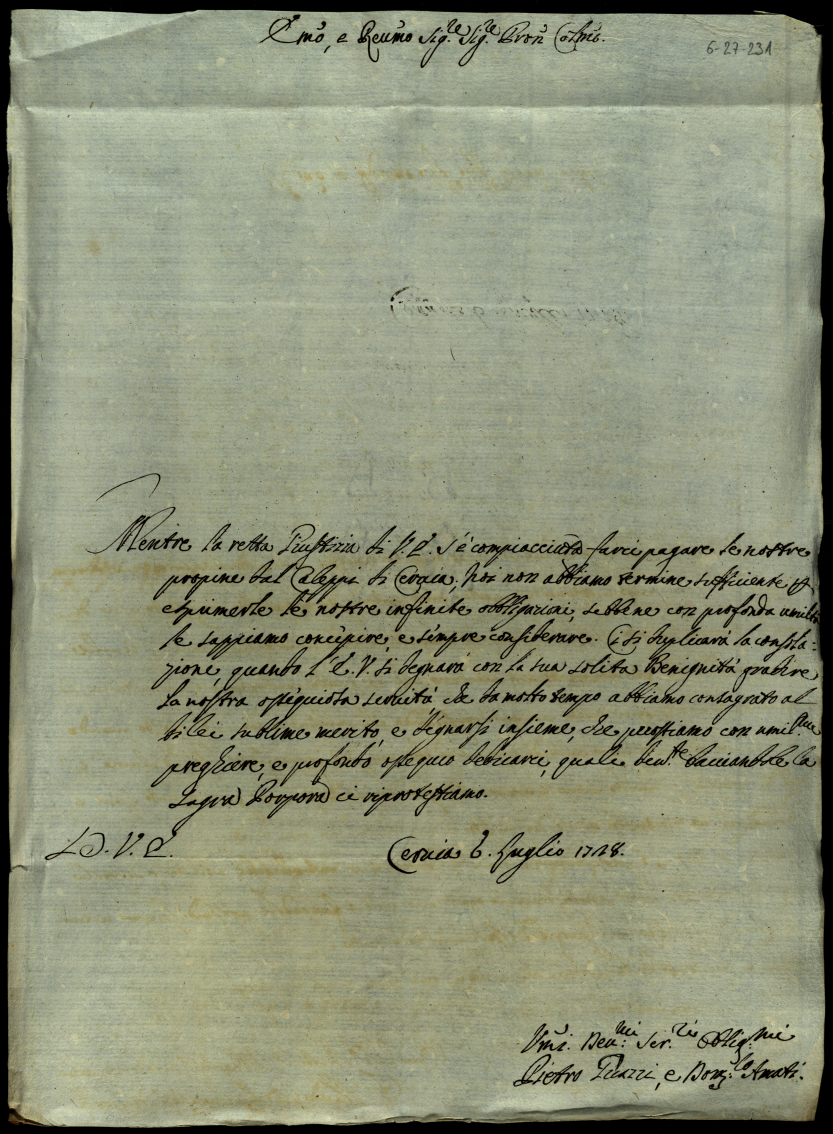 Emo, e Reumo Sig.re Sig.re Pron Colmo.
6-27-231
Mentre la retta Giustizia di V. E. s'è compiacciuta farci pagare le nostre
propine dal Caleppi di Ceruia, noi non abbiamo termine sufficiente per
esprimerle le nostre infinite obbligazioni, sebbene con profonda umiltà
le sappiamo concipire, e sempre considerare. Ci si duplicarà la consola=
zione, quando l'E. V. si degnarà con la sua solita Benignità gradire
la nostra osseguiosa seruitù che da molto tempo abbiamo consagrato al
di lei sublime merito, e degnarsi insieme, che possiamo con umil.me
preghiere, e profondo osseguio dedicarci, quali deu.te bacciandole la
Sagra Porpora ci riprotestiamo.
D. V. E.
Ceruia 6. Luglio 1728.
Vmi. Deu.mi Ser.ri Oblig.mi
Pietro e Dom.co Amati.